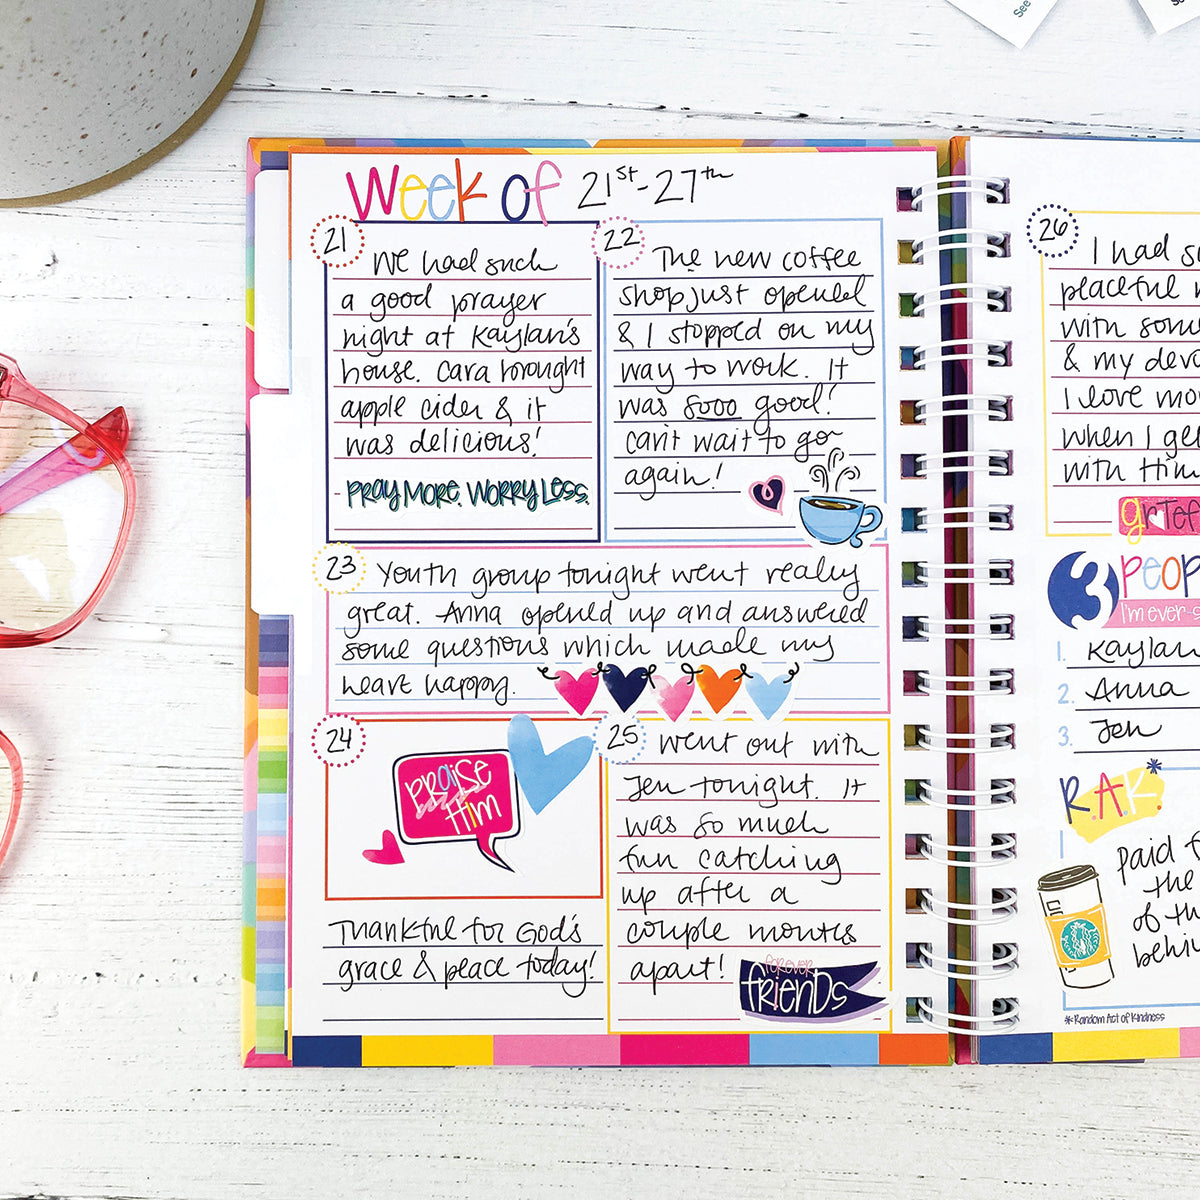 See
Week of 21st-27th
21
We had such
a good prayer
night at Kaylan's
house. Cara brought
apple cider & it
was delicious!
PRAY MORE. WORRY LESS.
22
The new coffee
shop just opened
& I stopped on my
way to work. It
was sooo good!
can't wait to go
again!
23
Youth group tonight went really
great. Anna opened up and answered
some questions which made my
heart happy.
24
PRaiSE
Him
Thankful for God's
grace & peace today!
25
Went out with
Jen tonight. It
was so much
fun catching
up after a
couple months
apart!
FOREVER
friENDS
26
I had
peaceful
with
& my
I love
when I
with Him
3
I'm
1. Kaylan
2. Anna
3. Jen
R.A.K.*
Paid
the
of
*: Random Act of Kindness